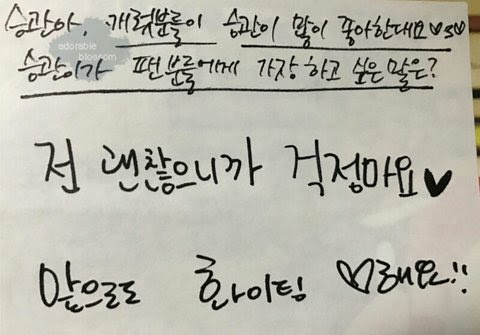 승관아, 캐럿분들이 승관이 많이 좋아한대요♡s♡
adorable
blossom
승관이가 팬분들에게 가장 하고 싶은 말은?
전 괜찮으니까 걱정마요♥
앞으로도 화이팅 ♡해요!!